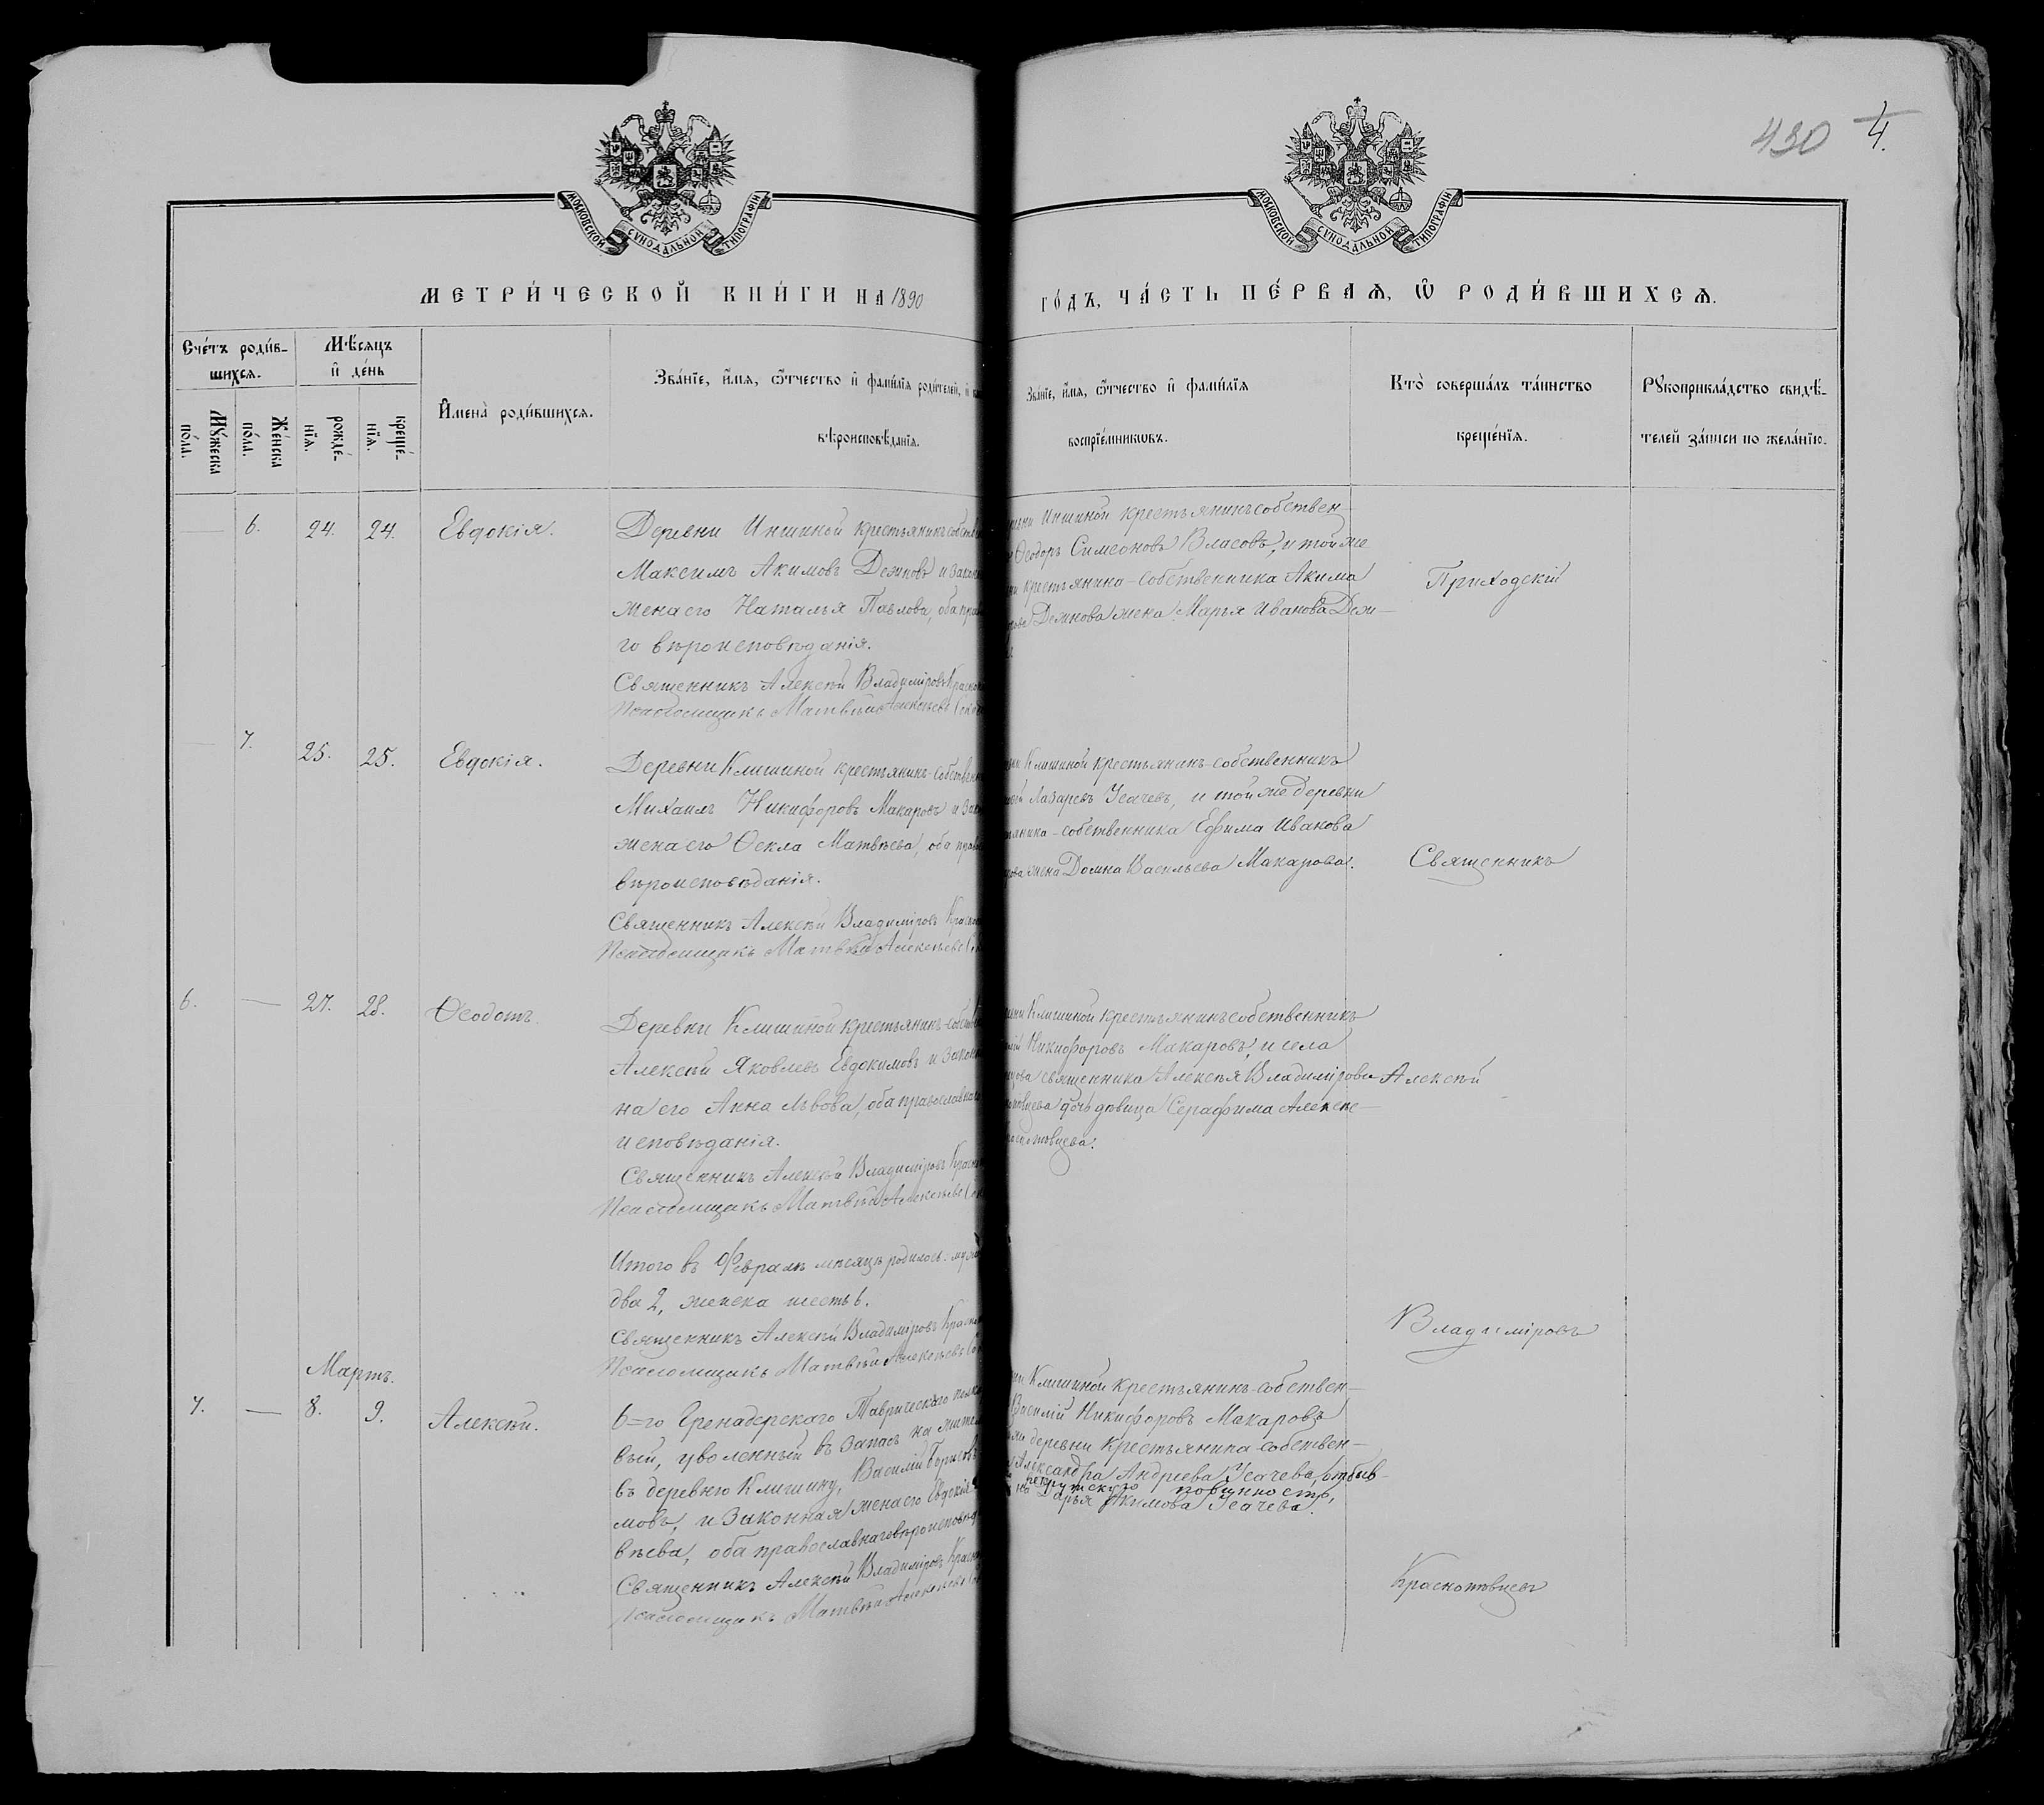 430 4.
МОСКОВСКОЙ СѴНОДАЛЬНОЙ ТИПОГРАФІИ
МОСКОВСКОЙ СѴНОДАЛЬНОЙ ТИПОГРАФІИ
МЕТРИ́ЧЕСКОЙ КНИ́ГИ НА 1890
ГО́ДЪ, ЧА́СТЬ ПЕ́РВАѦ, Ѽ РОДИ́ВШИХСѦ.
Сче́тъ роди́в-
шихсѧ.
Мѣ́сѧцъ
и҆ де́нь
Мꙋ́жеска
по́ла.
Же́нска
по́ла.
рожде́-
нїѧ.
креще́-
нїѧ.
И҆мена̀ роди́вшихсѧ.
Зва́нїе, и҆́мѧ, ѻ҆́тчество и҆ фами́лїѧ роди́телей, и҆
вѣроисповѣ́данїѧ.
Зва́нїе, и҆́мѧ, ѻ҆́тчество и҆ фами́лїѧ
воспрїе́мникѡвъ.
Кто̀ соверша́лъ та́инство
креще́нїѧ.
Рꙋкоприкла́дство свидѣ́-
телей за́писи по жела́нїю.
— 6. 24. 24. Евдокія.
Деревни Иншиной крестьянинъ собств
Максимъ Акимовъ Деэиновъ и закон
жена его Наталья Павлова, оба прав
го вѣроисповѣданія.
Священникъ Алексѣй Владиміровъ Красно
Псаломщикъ Матвѣй Алексѣевъ
Иншиной крестьянинъ собствен-
Ѳеодоръ Симеоновъ Власовъ, и той же
крестьянина-собственника Акима
жена Марья Иванова
Приходскій
— 7. 25. 25. Евдокія.
Деревни Клишиной крестьянинъ-собствен
Михаилъ Никифоровъ Макаровъ и зак
жена его Ѳекла Матвѣева, оба прав
вѣроисповѣданія.
Священникъ Алексѣй Владиміровъ Красно
Псаломщикъ Матвѣй Алексѣевъ
Клишиной крестьянинъ-собственникъ
Лазаревъ Усачевъ, и той же деревни
собственника Ефима Иванова
жена Домна Васильева Макарова.
Священникъ
6. — 27. 28. Ѳеодотъ.
Деревни Клишиной крестьянинъ-собств
Алексѣй Яковлевъ Евдокимовъ и закон
на его Анна Львова, оба православнаго
исповѣданія.
Священникъ Алексѣй Владиміровъ Красно
Псаломщикъ Матвѣй Алексѣевъ
Клишиной крестьянинъ собственникъ
Никифоровъ Макаровъ, и села
священника Алексѣя Владимірова
дочь дѣвица Серафима Алексѣе-
Алексѣй
Итого въ Февралѣ мѣсяцѣ родилось муж
два 2, женска шесть 6.
Священникъ Алексѣй Владиміровъ Красно
Псаломщикъ Матвѣй Алексѣевъ
Владиміровъ
Мартъ.
7. — 8. 9. Алексѣй.
6=го Гренадерскаго Таврическаго полка
вый, уволенный въ запасъ на жител
въ деревню Клишину, Василій Борисовъ
мовъ, и законная жена его Евдокія
вѣева, оба православнаго вѣроисповѣд
Священникъ Алексѣй Владиміровъ Красно
Псаломщикъ Матвѣй Алексѣевъ
Клишиной крестьянинъ-собствен-
Василій Никифоровъ Макаровъ
деревни крестьянина-собствен-
Александра Андреева Усачева, отбыв-
рекрутскую повинность,
Акимова Усачева.
Краснопѣвцевъ